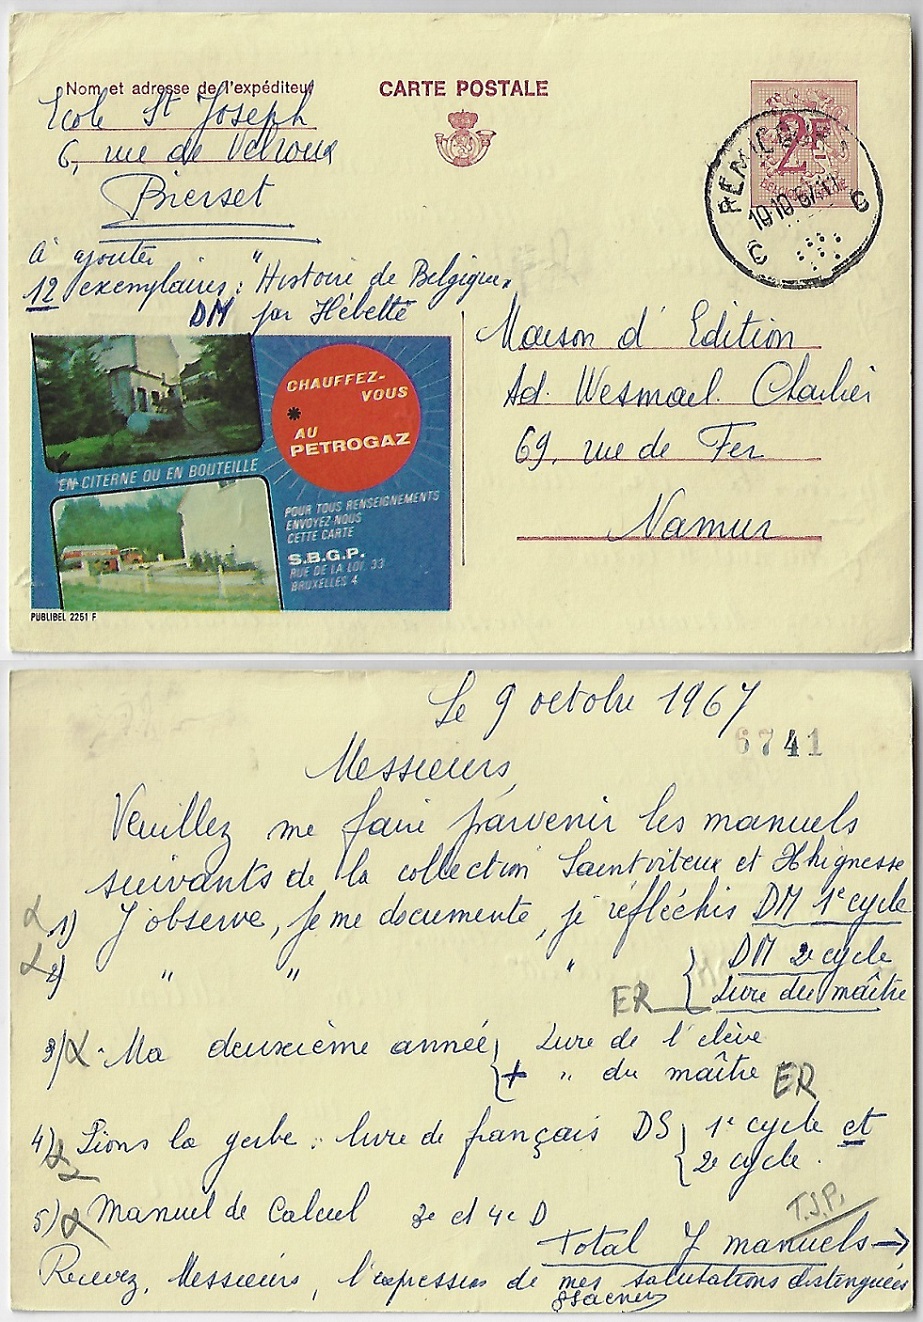 Nom et adresse de l'expéditeur
CARTE POSTALE
Ecole St Joseph
6, rue de Velroux
Bierset
2F
BELGIQUE-BELGIE
REMICOURT
10-10-67 17
C C
à ajouter
12 exemplaires : "Histoire de Belgique"
DM par Hébette
Maison d' Edition
Ad. Wesmael Charlier
69, rue de Fer
Namur
CHAUFFEZ-
VOUS
AU
PETROGAZ
EN CITERNE OU EN BOUTEILLE
POUR TOUS RENSEIGNEMENTS
ENVOYEZ-NOUS
CETTE CARTE
S.B.G.P.
RUE DE LA LOI 33
BRUXELLES 4
PUBLIBEL 2251 F
Le 9 octobre 1967
6741
Messieurs,
Veuillez me faire parvenir les manuels
suivants de la collection Saintviteux et
1) J'observe, je me documente, je réfléchis DM 1e cycle
2) " " " DM 2e cycle
ER Livre du maître
3) Ma deuxième année Livre de l'élève
+ " du maître ER
4) Lions la gerbe : livre de français DS 1e cycle et
2e cycle.
5) Manuel de Calcul 3e et 4e D
T.S.P.
Total 7 manuels →
Recevez, Messieurs, l'expression de mes salutations distinguées